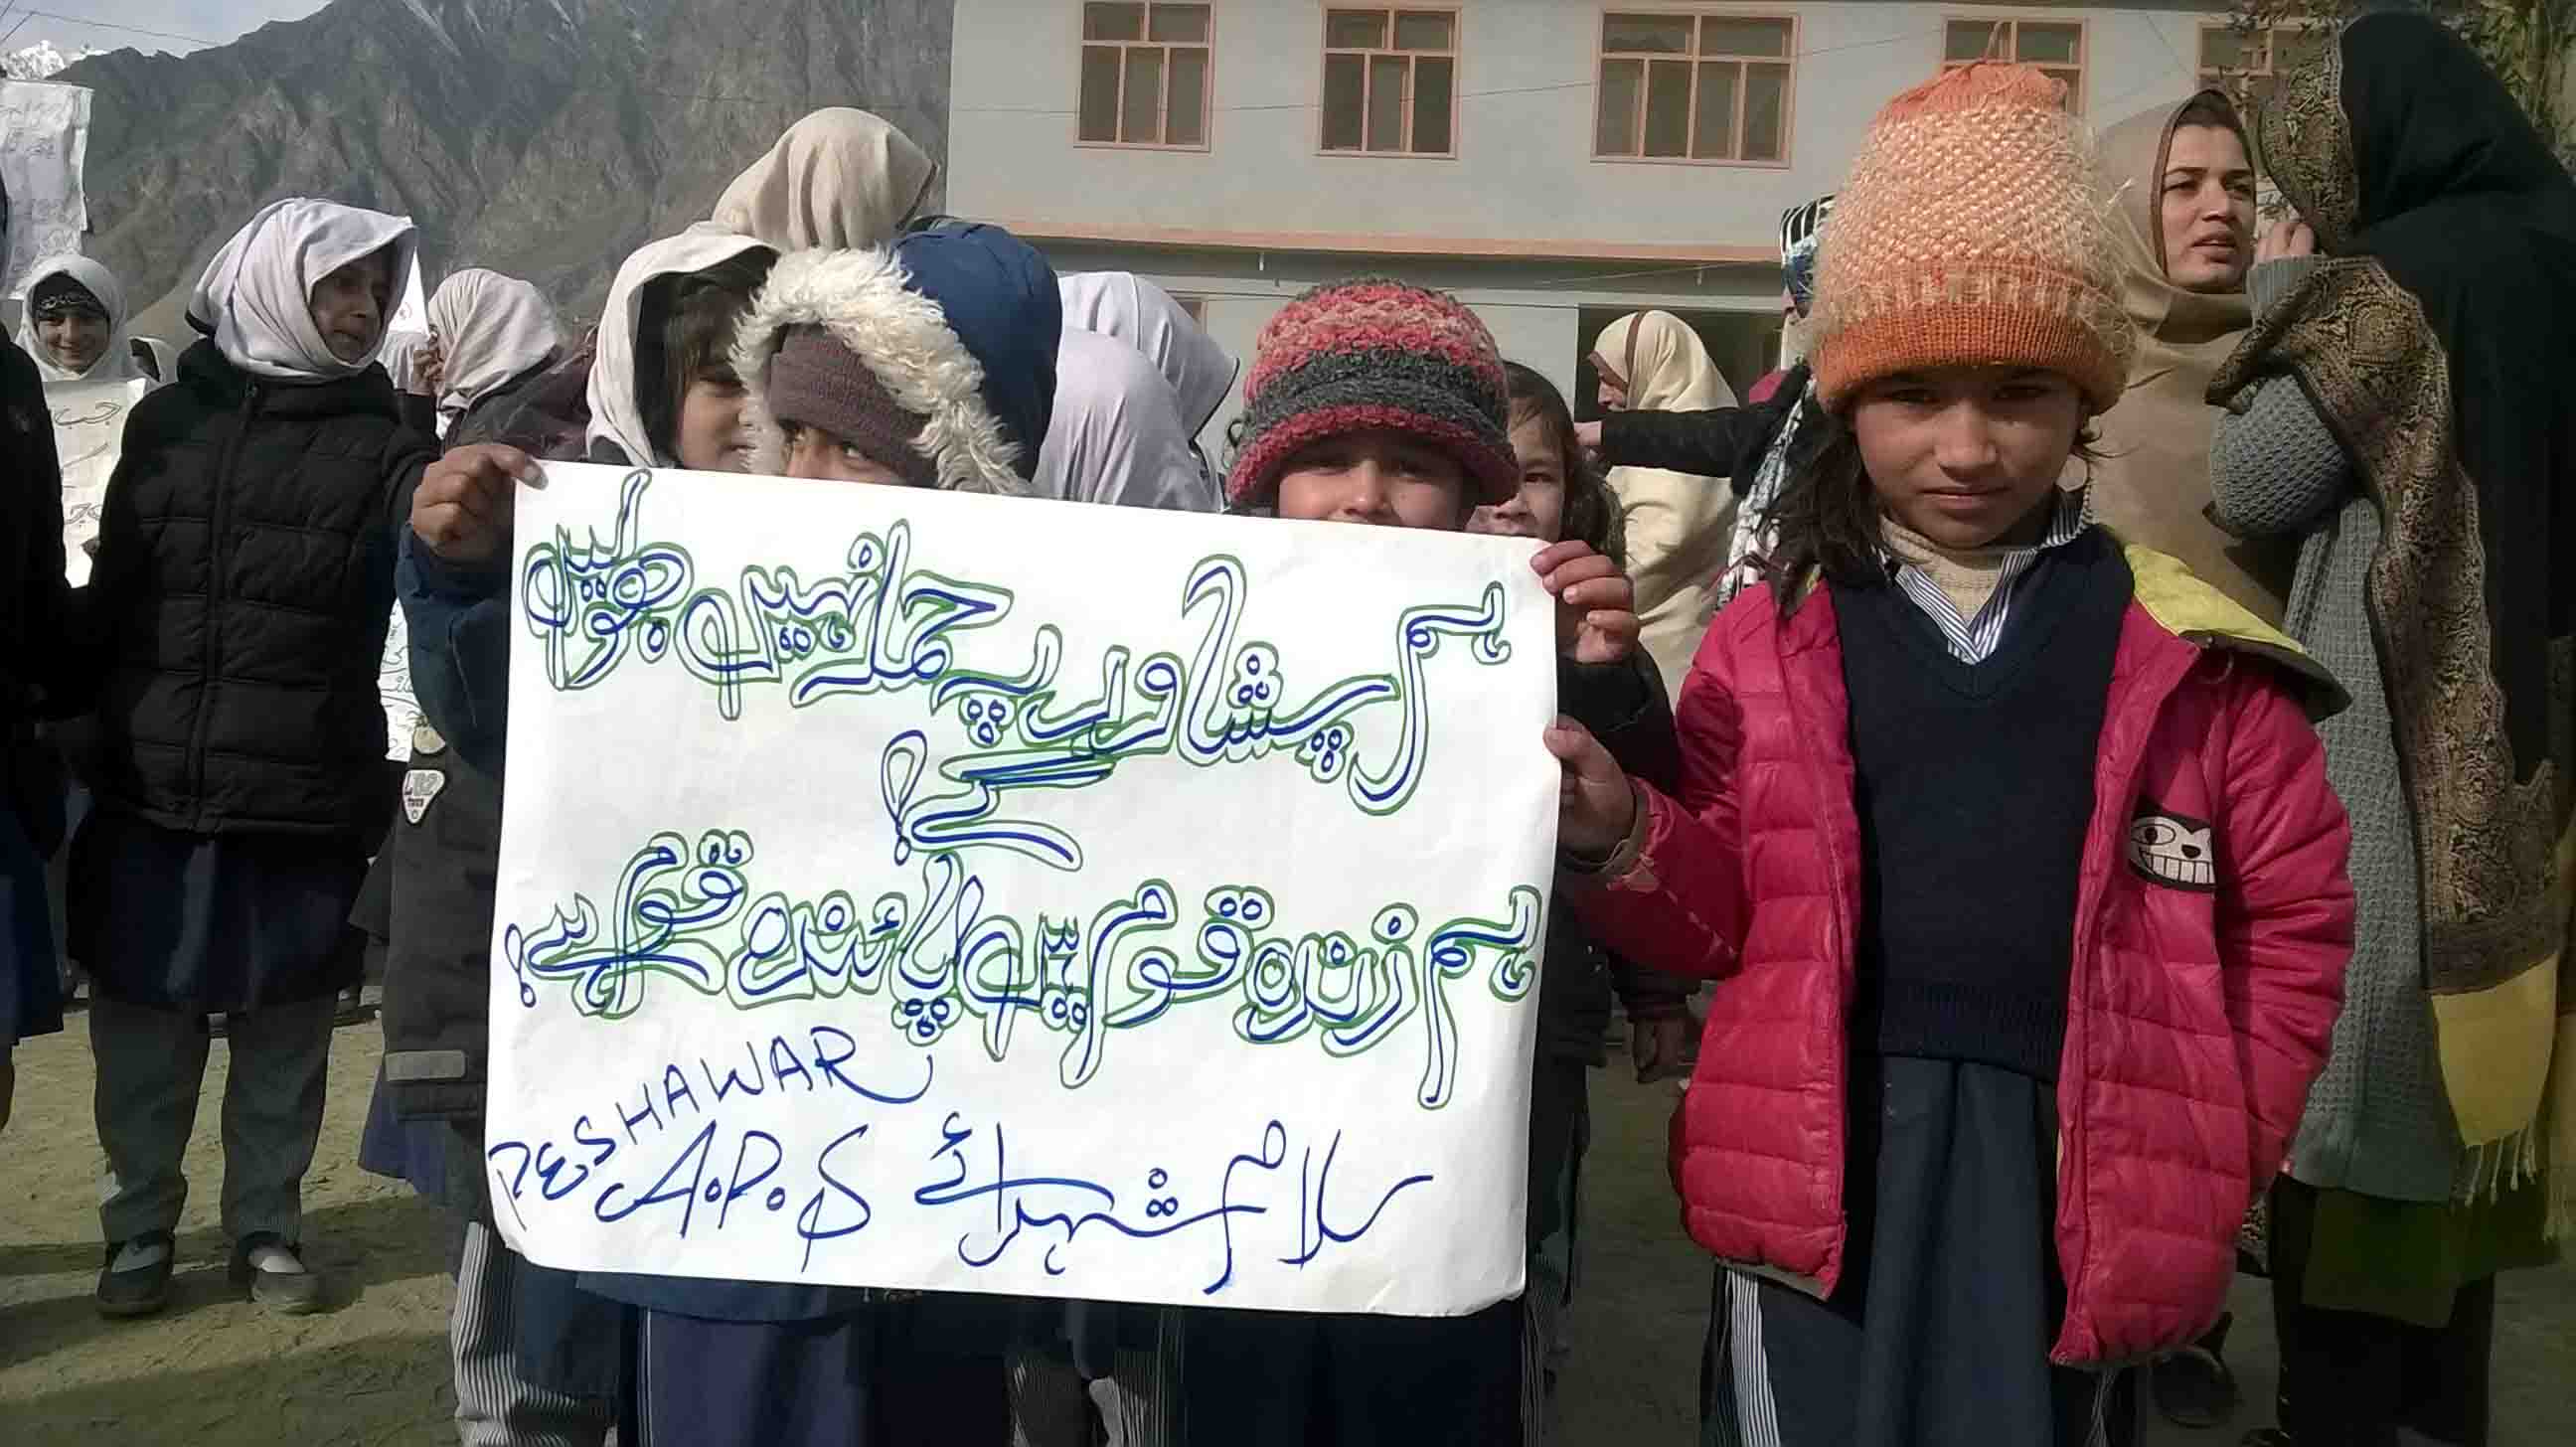 ہم پشاور پہ حملہ نہیں بھولیں
گے!
ہم زندہ قوم ہیں پائندہ قوم ہے!
PESHAWAR
سلام شہدائے A.P.S